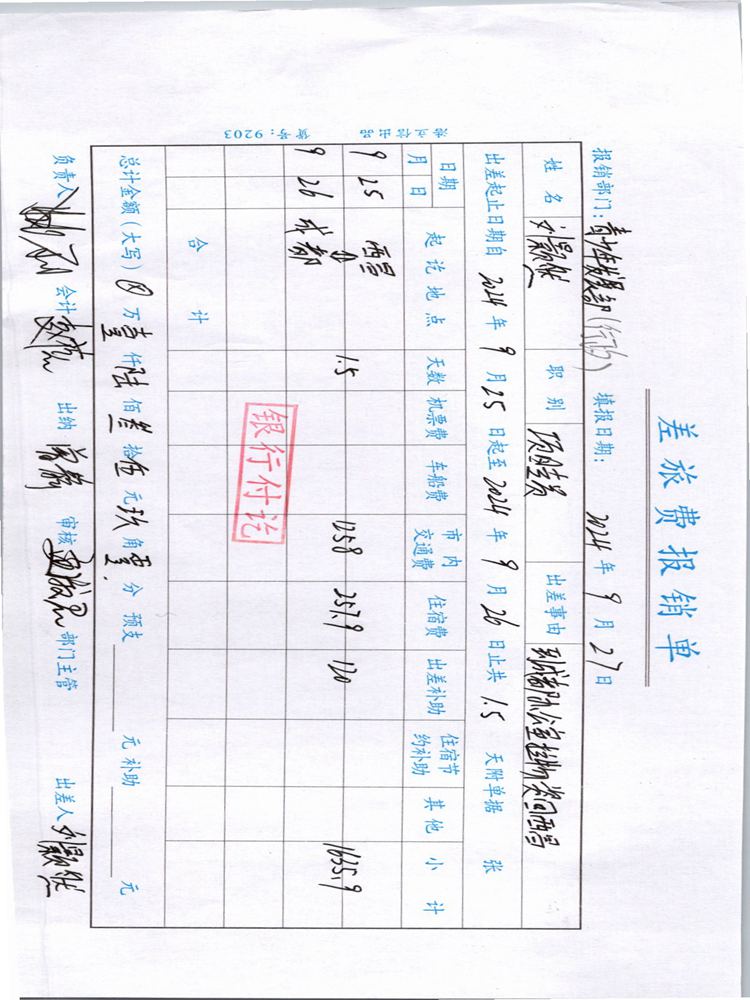 差旅费报销单
报销部门： (行政) 填报日期： 2024 年 9 月 27 日
姓名 刘颢然 职别 出差事由
出差起止日期自 2024 年 9 月 25 日起至 2024 年 9 月 26 日止共 1.5 天附单据 张
日期 起讫地点 天数 机票费 车船费 市内交通费 住宿费 出差补助 住宿节约补助 其他 小计
月 日
9 25 西昌 1.5 1258 257.9 120 1635.9
9 26 成都
合计
银行付讫
总计金额（大写） 万 壹 仟 陆 佰 叁 拾 伍 元 玖 角 零 分 预支 元 补助 元
负责人 会计 出纳 审核 部门主管 出差人 刘颢然
浩立信出品 货号：9203